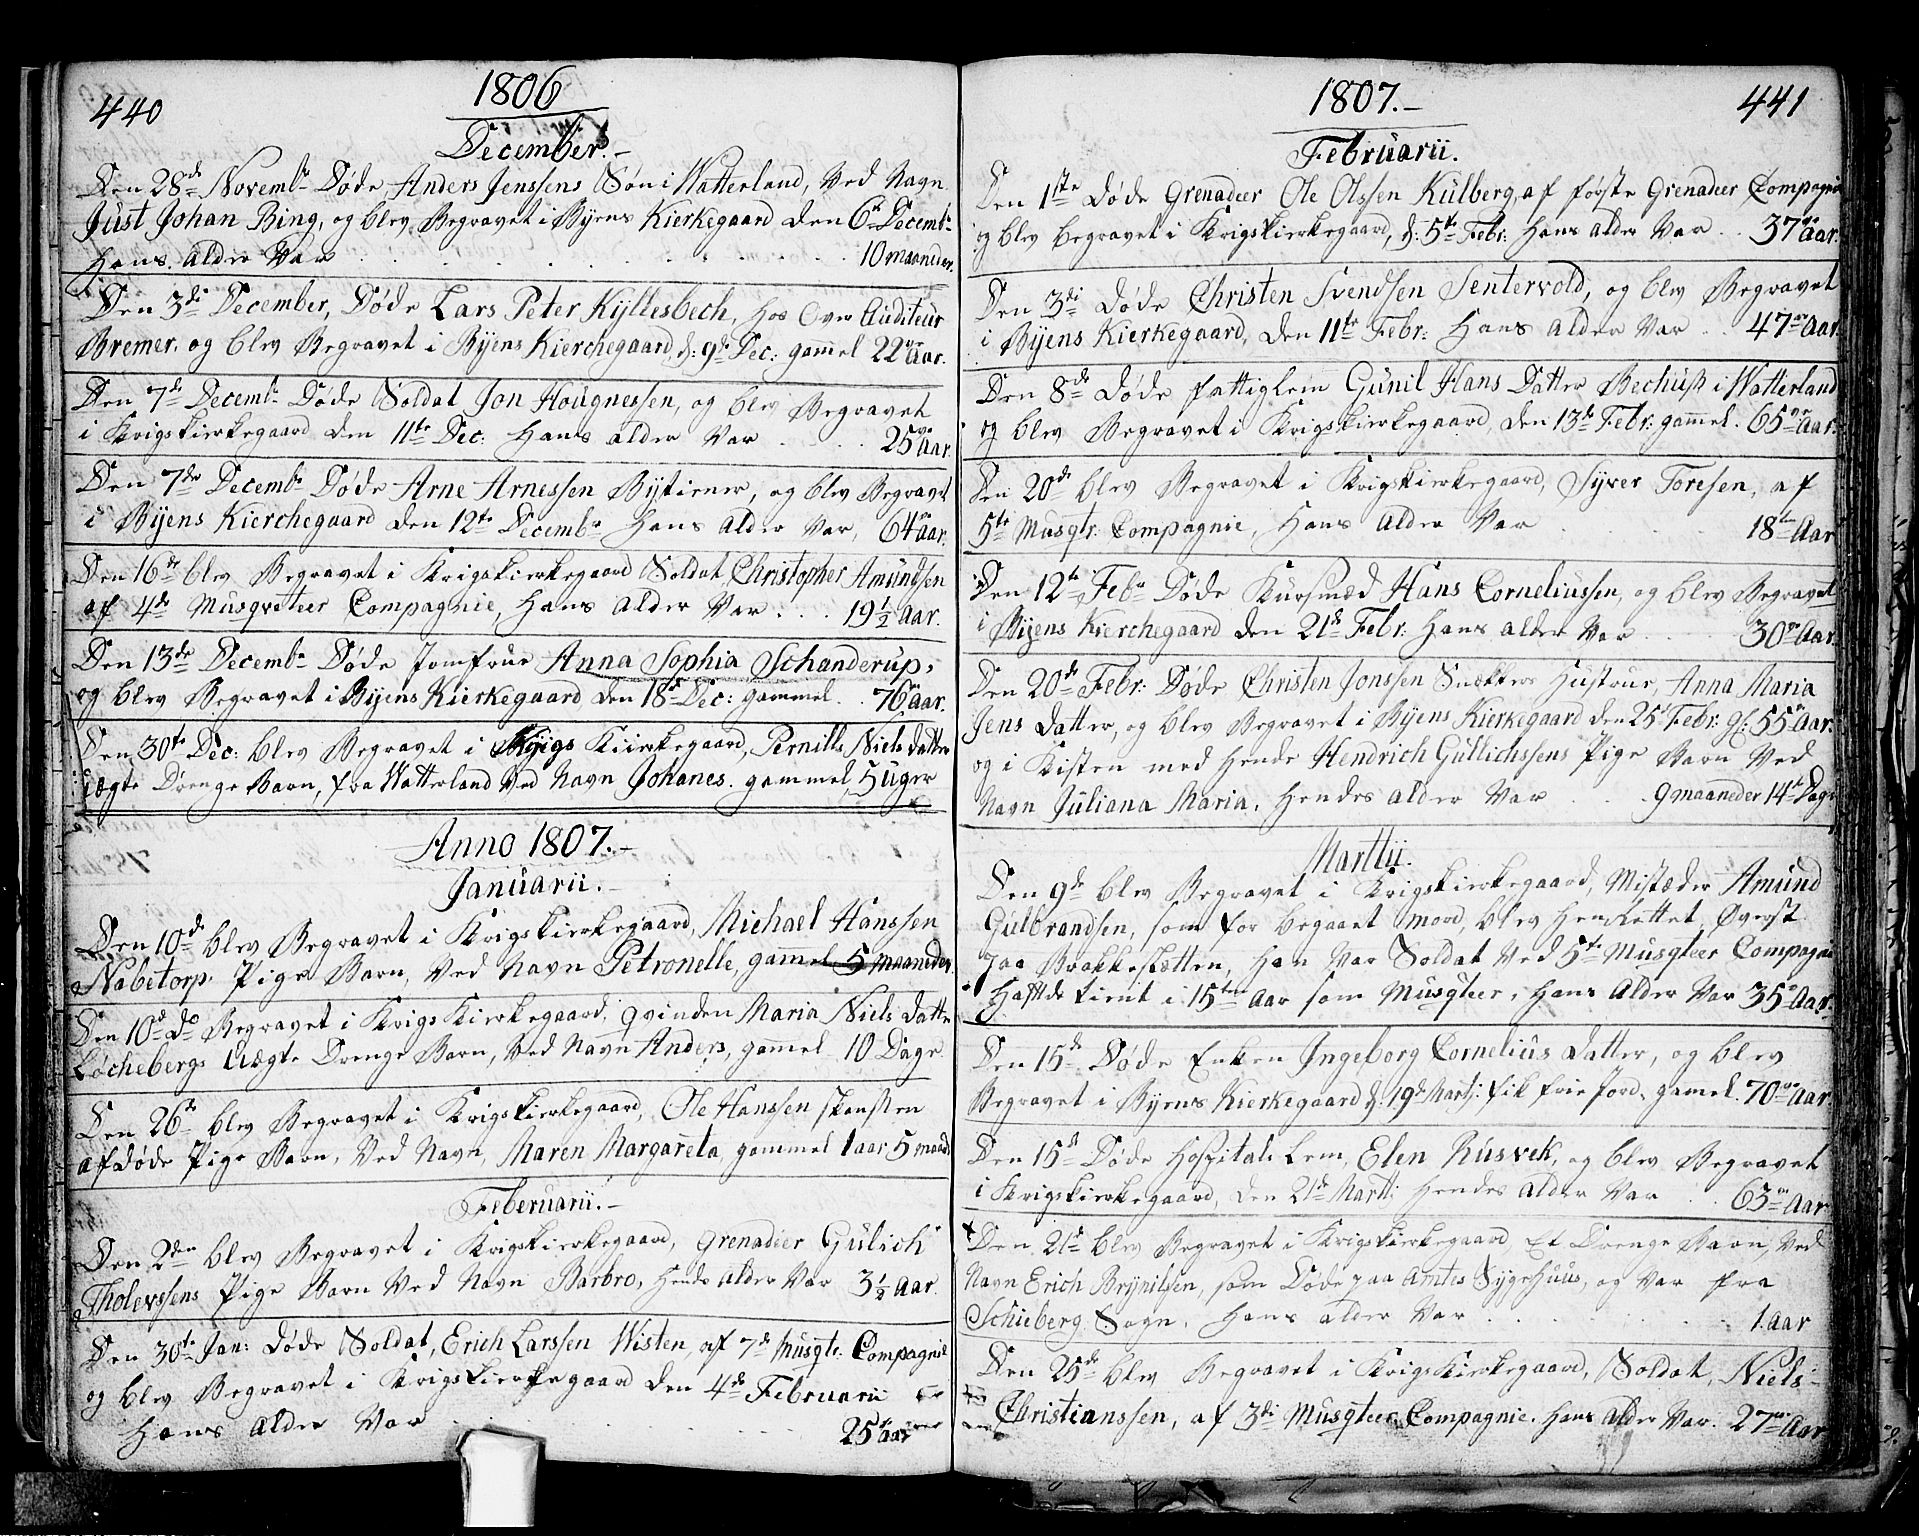 440
1806
December.-
Den 28de Novembr Døde Anders Jenssens Søn i Watterland, Ved Navn
Just Johan Bing, og blev Begravet i Byens Kierkegaard den 6te Decembr
Hans Alder Var . . . 10 maaneder.
Den 3di December, Døde Lars Peter Kyllesbech, hos Over Auditeur
Bremer, og blev Begravet i Byens Kierchegaard, d: 9de Dec: gammel 22ve Aar.
Den 7de Decembr Døde Soldat Jon Hougnessen, og blev Begravet
i Krigskierkegaard den 11te Dec: Hans alder Var . . . 25ve Aar.
Den 7de Decembr Døde Arne Arnessen Bytiener, og blev Begravet
i Byens Kierchegaard den 12te Decembr Hans Alder Var, 64ve Aar.
Den 16de blev Begravet i Krigskierkegaard Soldat Christopher Amundsen
af 4de Musqveteer Compagnie, Hans Alder Var . . . 19 1/2 Aar.
Den 13de Decembr Døde Jomfrue Anna Sophia Schanderup,
og blev Begravet i Byens Kierkegaard, den 18de Dec: gammel . . 76ve Aar.
Den 30te Dec: blev Begravet i Krigs Kiirkegaard, Pernille Niels datter
uægte Drenge Barn, fra Watterland Ved Navn Johanes. gammel, 5 uger
Anno 1807.-
Januarii.-
Den 10de blev Begravet i Krigskierkegaard, Michael Hanssen
Nabetorp Pige Barn, Ved Navn Petronelle, gammel 5 maaneder.
Den 10de do Begravet i Krigs Kierkegaard, qvinden Maria Niels datter
Løchebergs Uægte Drenge Barn, Ved Navn Anders, gammel 10 Dage
Den 26de blev Begravet i Krigskierkegaard, Ole Hanssen skansken
afdøde Pige Barn, Ved Navn, Maren Margareta, gammel 1 aar 5 maand
Feberuarii.-
Den 2den blev Begravet i Krigskierkegaard, Grenadeer Gulich
Tholevssens Pige Barn Ved Navn Barbro, Hends Alder Var 3 1/2 Aar.
Den 30te Jan: døde Soldat, Erich Larssen Wisten, af 7de Musqt: Compagnie
og blev Begravet i Krigskierkegaard den 4de Februarii
Hans Alder Var . . . 25ve Aar
1807.-
441
Februarii.
Den 1ste Døde Grenadeer Ole Olssen Kulberg, af første Grenadeer Compagnie
og blev begravet i Krigskierkegaard, d: 5te Febr: Hans Alder Var . . 37ve Aar.
Den 3di Døde Christen Svendsen Sentervold, og blev Begravet
i Byens Kierkegaard, den 11te Febr: Hans Alder Var . . 47ve Aar.
Den 8de Døde fattiglem Gunil Hans Datter Bechust i Watterland
og blev Begravet i Krigskierkegaard, den 13de Febr: gammel. 65ve Aar.
Den 20de blev Begravet i Krigskierkegaard, Syver Toresen, af
5te Musqtr: Compagnie, Hans Alder Var . . . 18ten Aar
Den 12te Febr Døde Kursmed Hans Corneliussen, og blev Begravet
i Byens Kierchegaard den 21de Febr: Hans alder Var . . . 30ve Aar.
Den 20de Febr: Døde Christen Jonssen Snekkers Hustrue, Anna Maria
Jens datter, og blev Begravet i Byens Kierkegaard den 25de Febr: gl: 55ve Aar.
og i Kisten med hende Hendrich Gullichssens Pige Barn Ved
Navn Juliana Maria, Hendes Alder Var . . . 9 maaneder 14 Dage
Martii.
Den 9de blev Begravet i Krigskierkegaard, Misdæder Amund
Gulbrandsen, som for begaaet mord, blev HenRettet Øverst
paa Brakkesletten, Han Var Soldat Ved 5te Musqteer Compagnie
Hafde tient i 15ten Aar som Musqteer, Hans Alder Var 35ve Aar.
Den 15de Døde Enken Ingeborg Cornelius datter, og blev
Begravet i Byens Kierkegaard d: 19de Martj: fik frie Jord, gamel. 70ve Aar
Den 15de Døde Hospitals Lem, Elen Rusvek, og blev Begravet
i Krigskierkegaard, den 21de Martj Hendes Alder Var . . 63ve Aar
Den 21de blev Begravet i Krigskierkegaard, Et Drenge Barn, Ved
Navn Erich Brynilsen, som Døde paa Amtes Sygehuus, og Var fra
Schieberg Sogn, Hans Alder Var . . . 1 Aar
Den 25de blev Begravet i Krigs Kierkegaard, Soldat, Niels
Christianssen, af 3di Musqteer Compagnie. Hans Alder Var. 27ve Aar